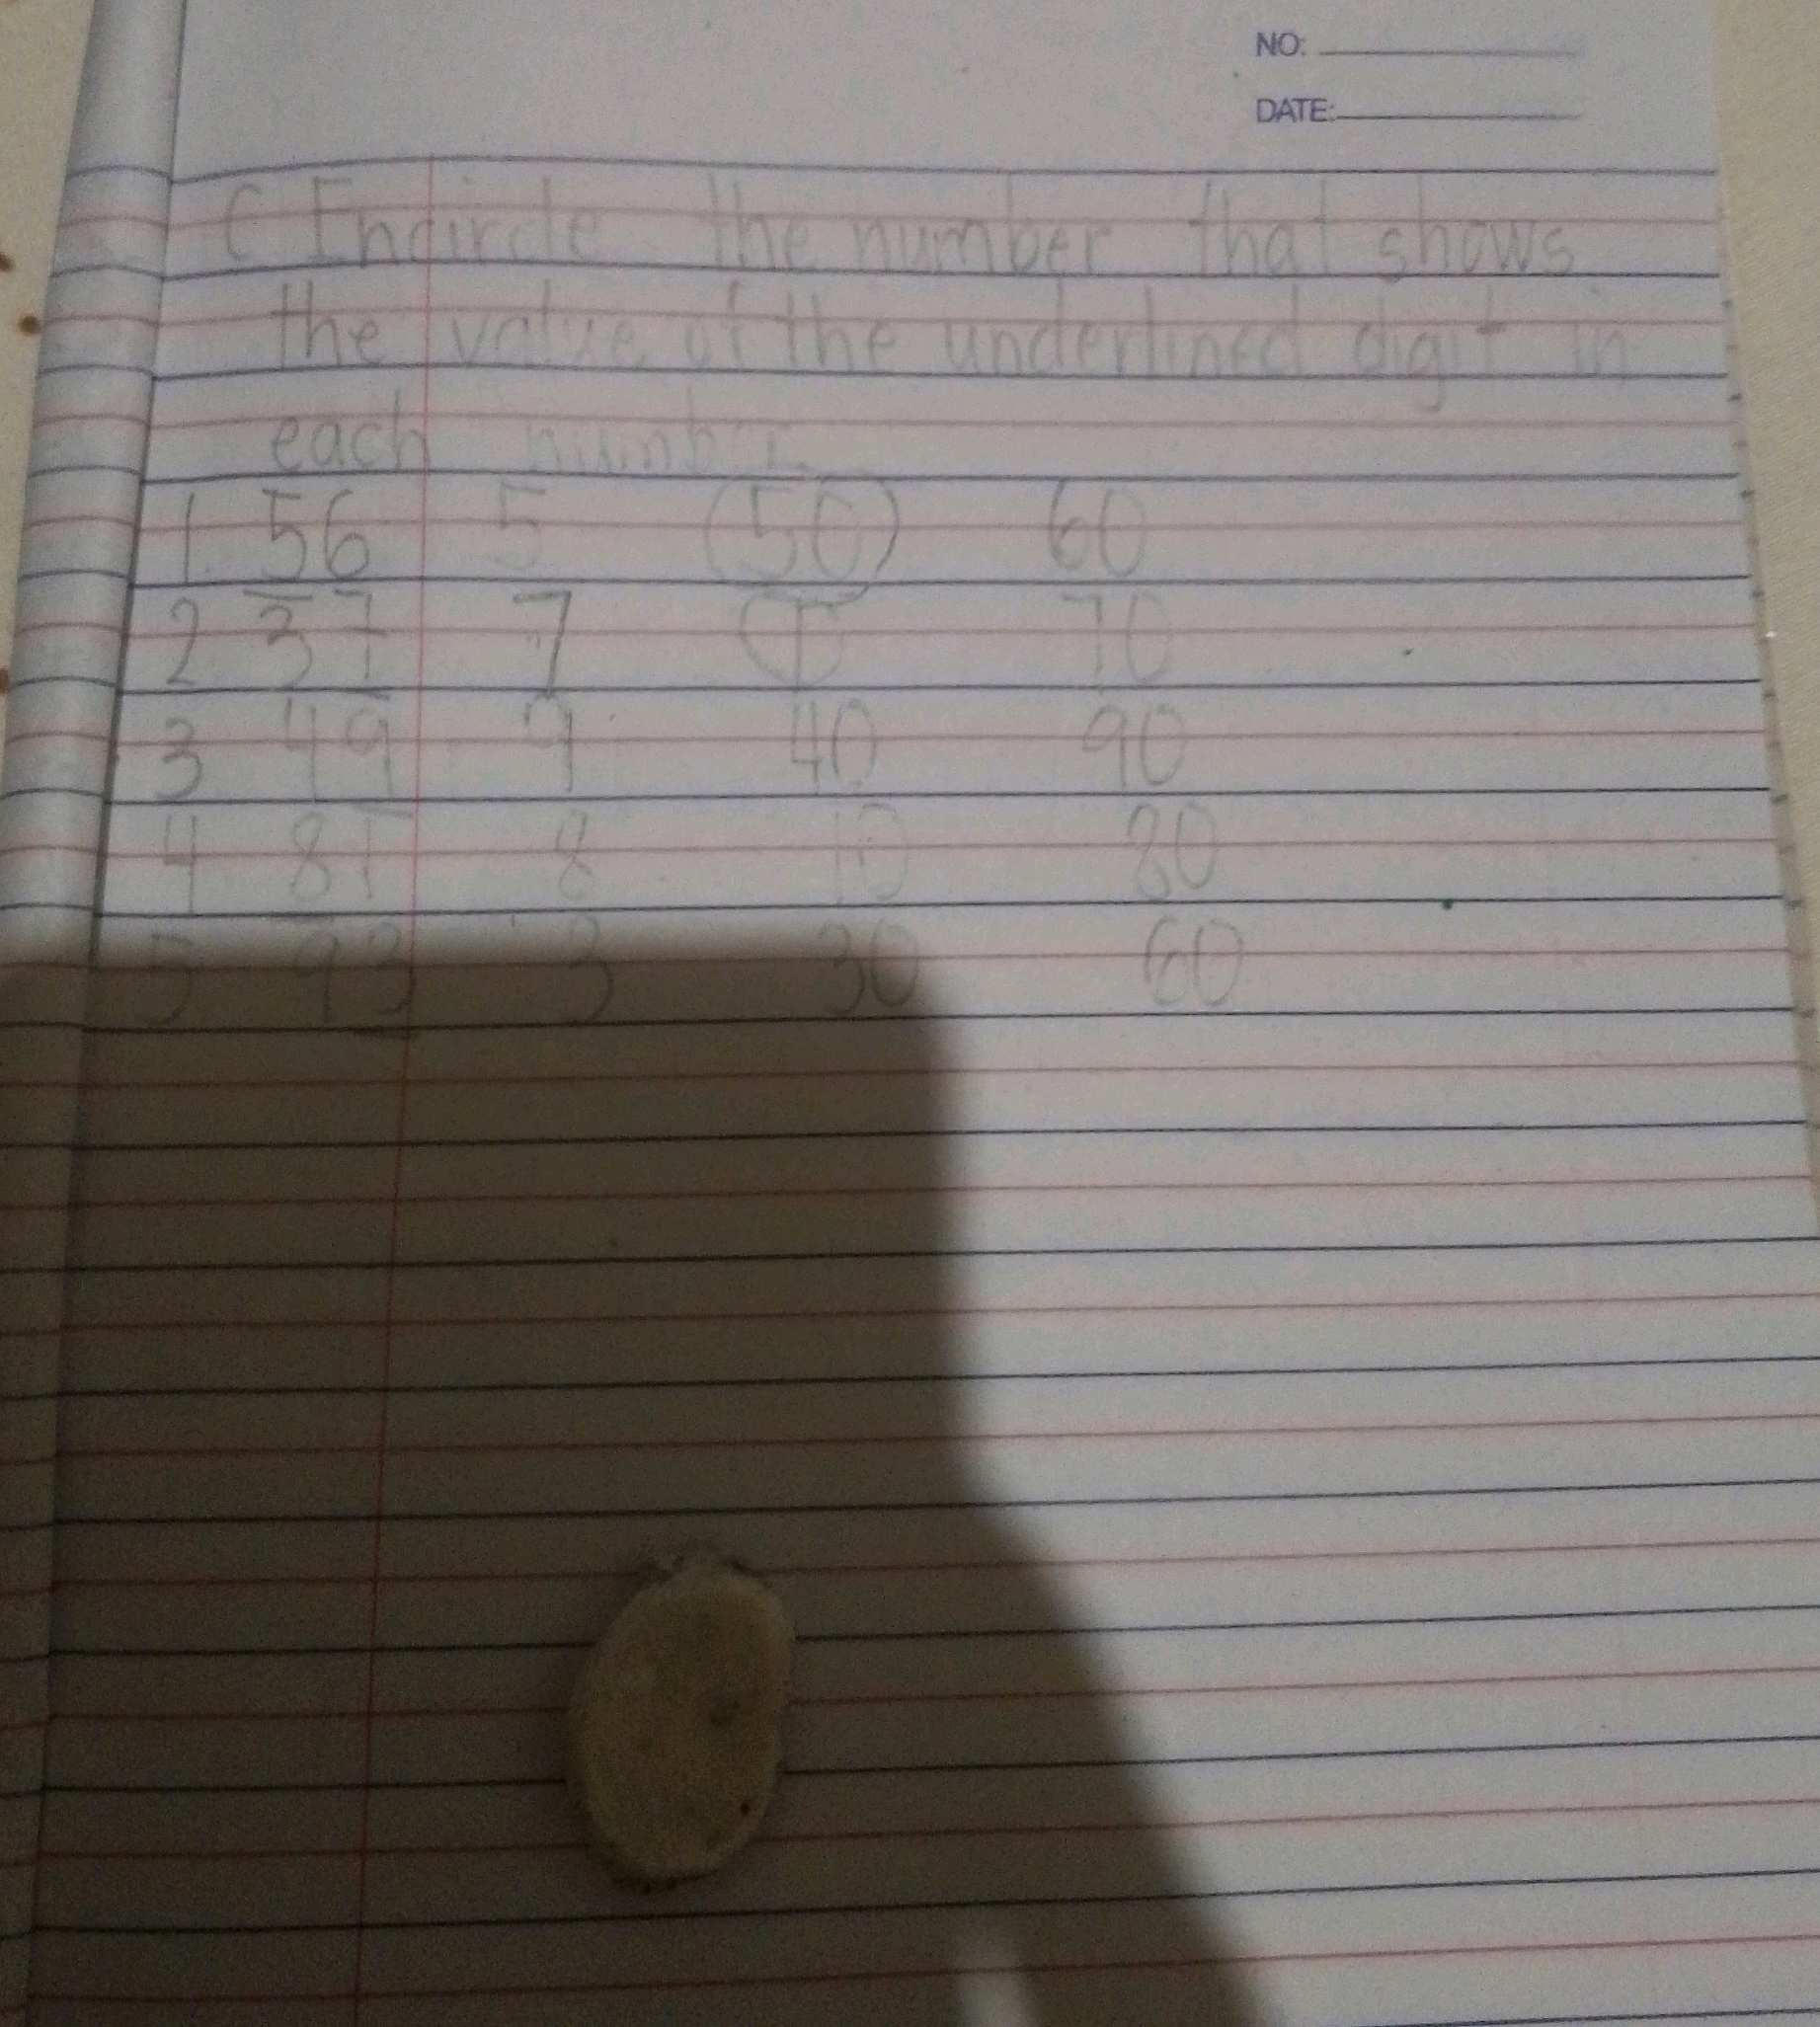 NO:
DATE:
C Encircle the number that shows
the value of the underlined digit in
each number
1. 56 5 50 60
2 37 7 70
3 49 9 40 90
4 81 8 10 80
5 93 3 30 60